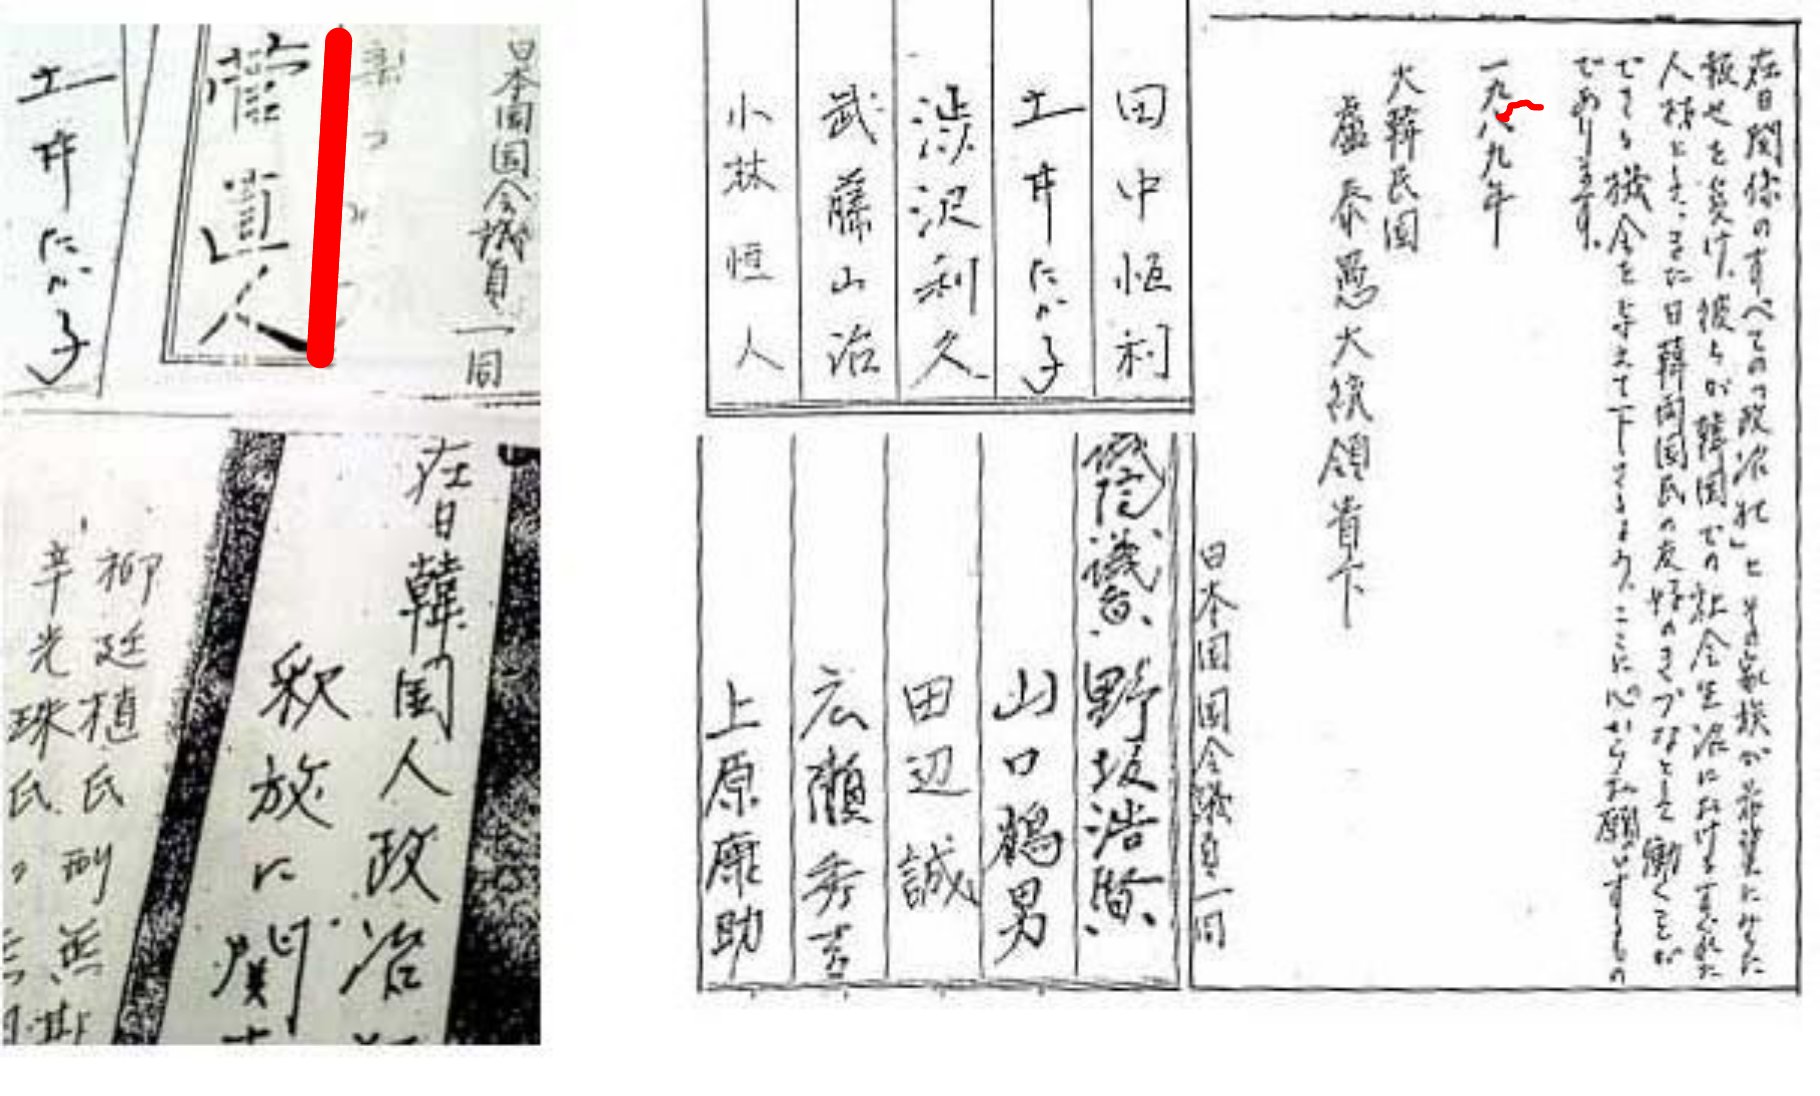 在日関係のすべての「政治犯」とその家族が希望にみちた
報せを受け、彼らが韓国での社会生活におけるすぐれた
人材として、また日韓両国民の友好のきづなとして働くことが
できる機会を与えて下さるよう、ここに心からお願いするもの
であります。
一九八九年
大韓民国
盧泰愚大統領貴下
日本国国会議員一同
田中恒利
土井たか子
渋沢利久
武藤山治
小林恒人
野坂浩賢
山口鶴男
田辺誠
広瀬秀吉
上原康助
日本国国会議員一同
菅直人
土井たか子
在日韓国人政治
釈放に関
柳廷植氏
辛光珠氏